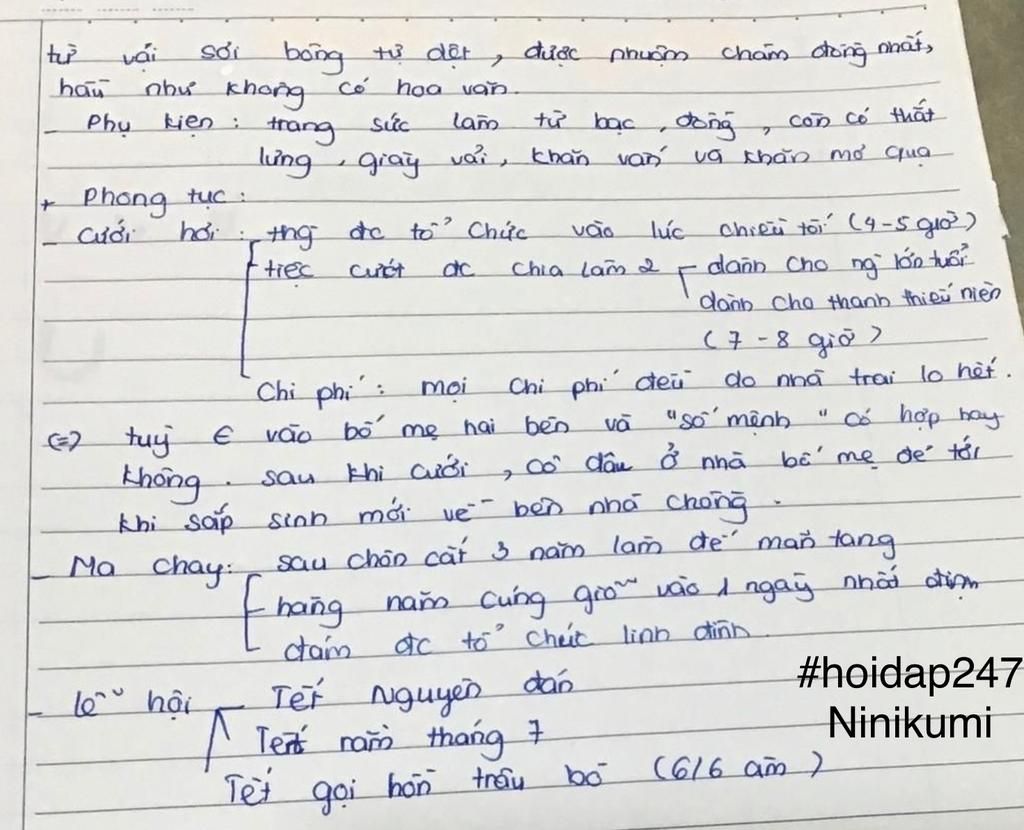 từ vải sợi bông tự dệt, được nhuộm chàm đồng nhất,
hầu như không có hoa văn.
- Phụ kiện: trang sức làm từ bạc, đồng, còn có thắt
lưng, giày vải, khăn vấn và khăn mỏ quạ
+ Phong tục:
- Cưới hỏi: thg đc tổ chức vào lúc chiều tối (4-5 giờ)
tiệc cưới đc chia làm 2 dành cho ng lớn tuổi
dành cho thanh thiếu niên
(7-8 giờ)
Chi phí: mọi chi phí đều do nhà trai lo hết.
(=) tuỳ ∈ vào bố mẹ hai bên và "số mệnh" có hợp hay
không. sau khi cưới, cô dâu ở nhà bố mẹ đẻ tới
khi sắp sinh mới về bên nhà chồng.
- Ma chay: sau chôn cất 3 năm làm để mãn tang
hàng năm cúng giỗ vào 1 ngày nhất định
đám đc tổ chức linh đình
- lễ hội Tết Nguyên đán
Tết rằm tháng 7
Tết gọi hồn trâu bò (6/6 âm)
#hoidap247
Ninikumi